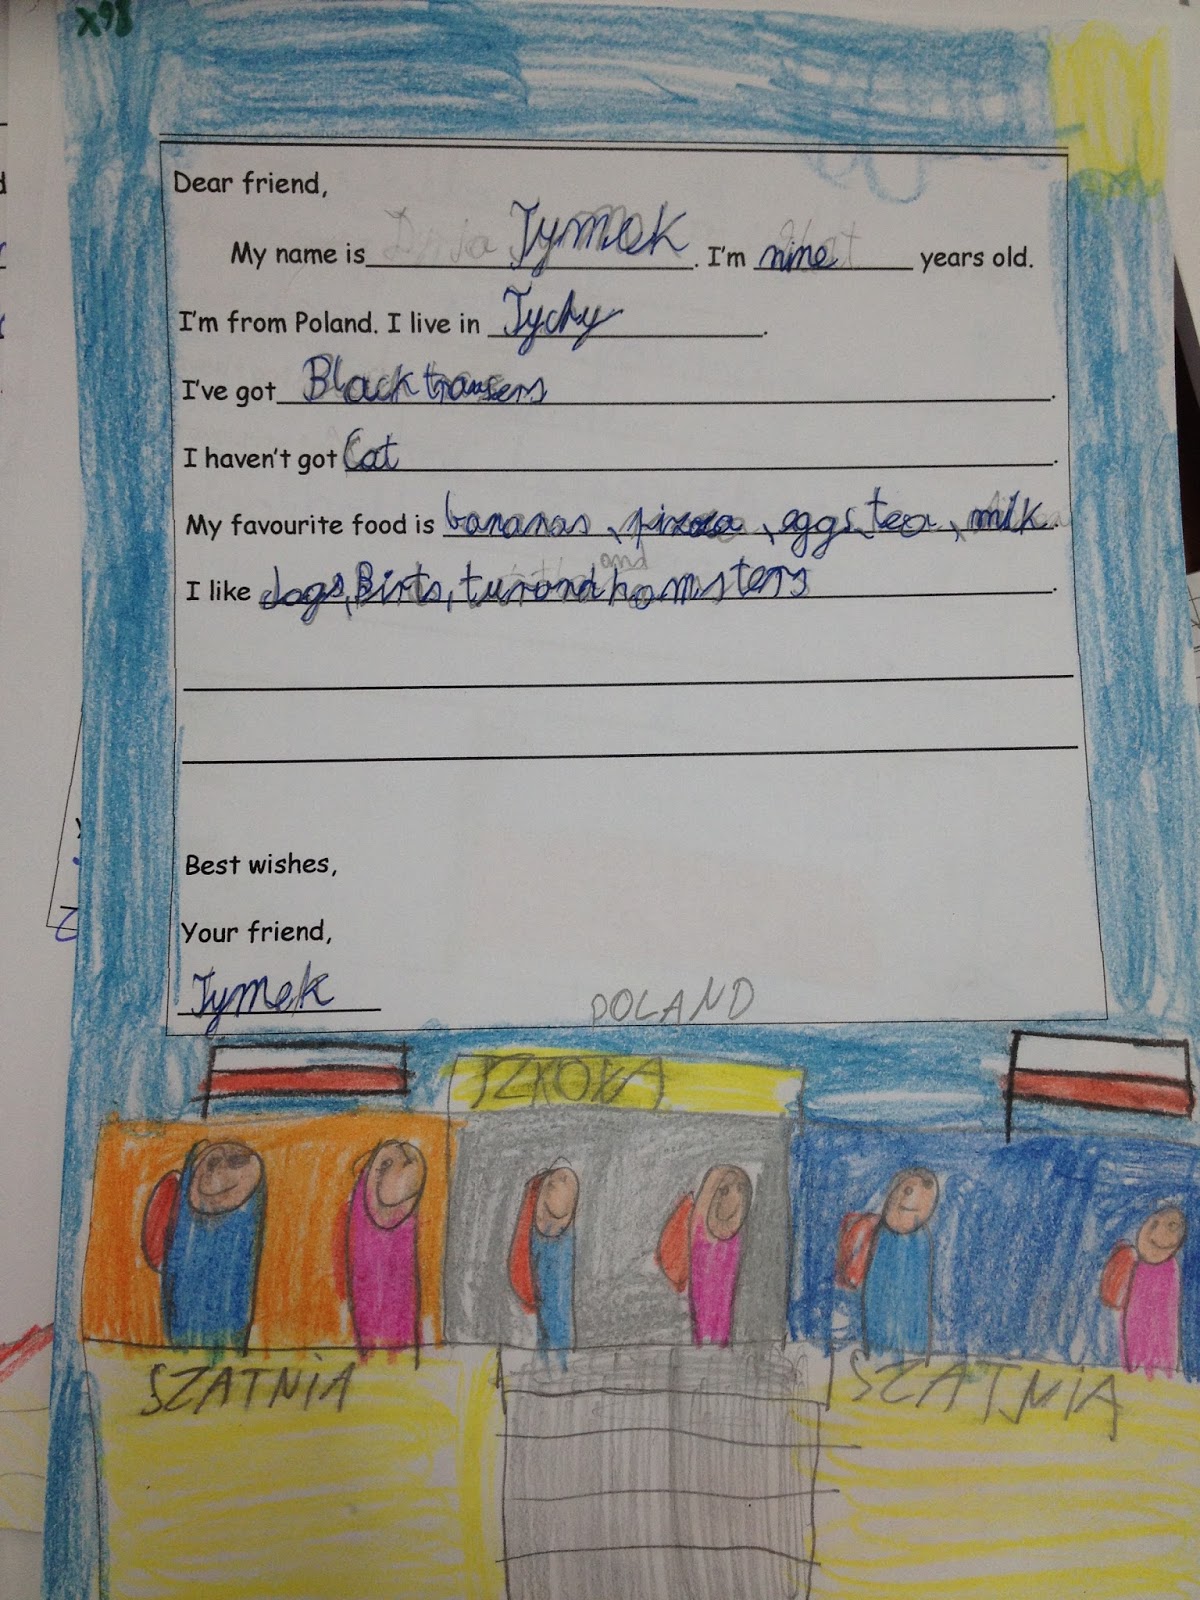 x98
Dear friend,
My name is Tymek. I'm nine years old.
I'm from Poland. I live in Tychy.
I've got Black trousers.
I haven't got Cat.
My favourite food is bananas, pizza, eggs, tea, milk.
and
I like dogs, Birts, hamsters.
Best wishes,
Your friend,
Tymek
POLAND
SZKOŁA
SZATNIA
SZATNIA